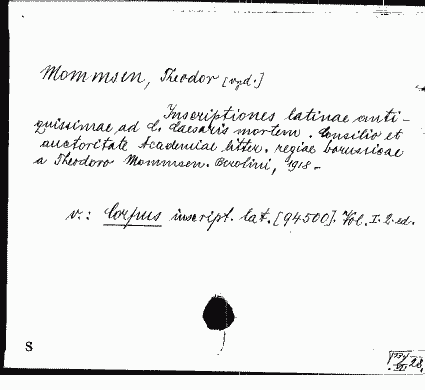 Mommsen, Theodor [vyd.]
Inscriptiones latinae anti-
quissimae ad C. Caesaris mortem. Consilio et
auctoritate Academiae litter. regiae borussicae
a Theodoro Mommsen. Berolini, 1918-
v.: Corpus inscript. lat. [94500]. Vol. I. 2. ed.
S